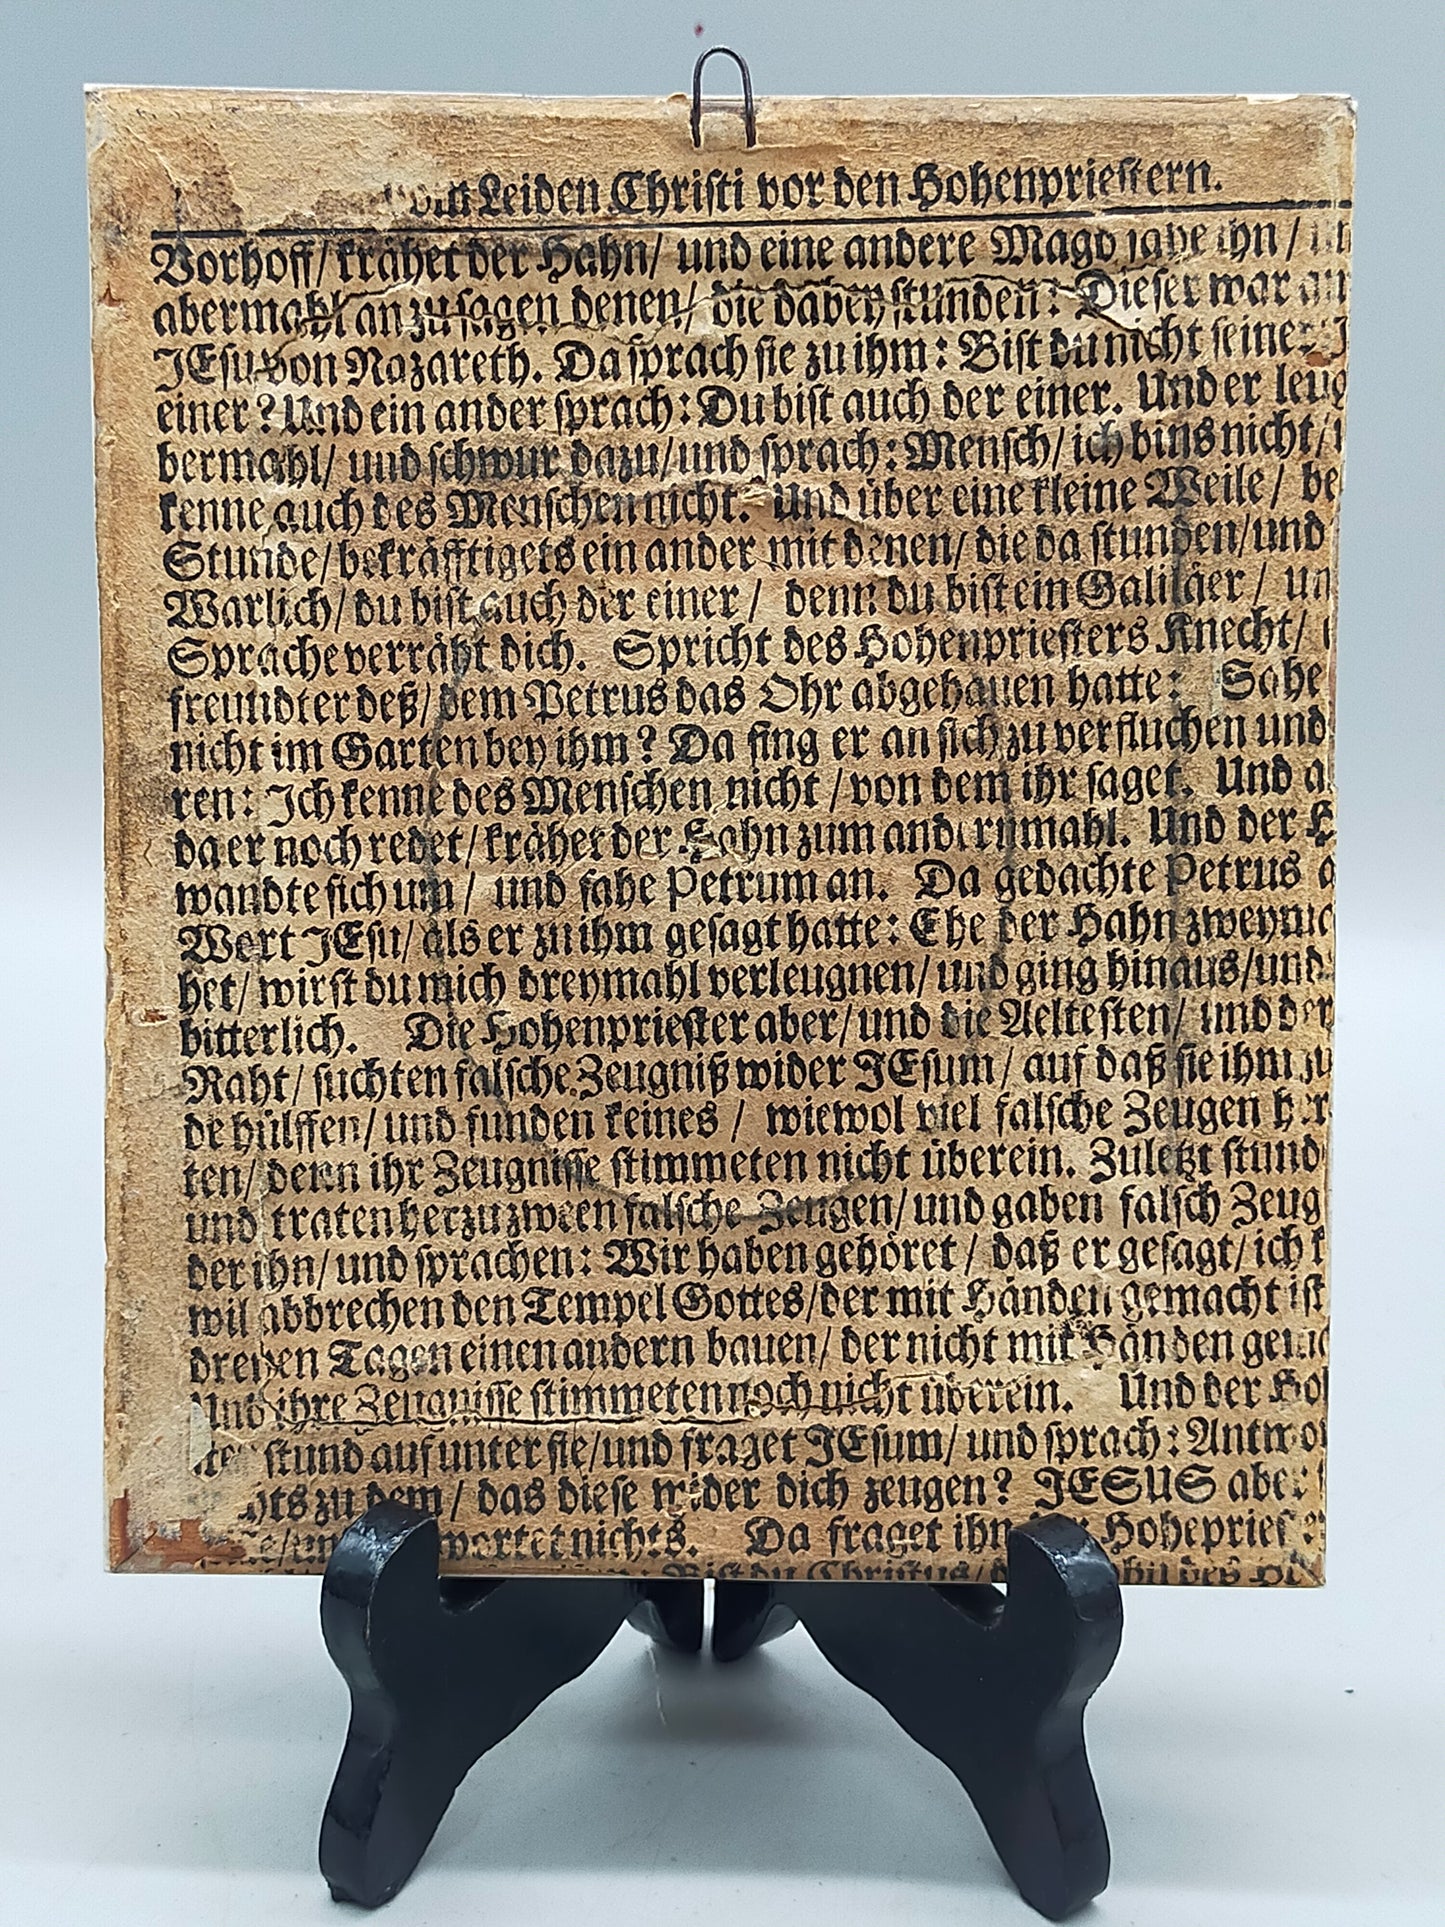 vom Leiden Christi vor den Hohenpriestern.
Vorhoff/ krähet der Hahn/ und eine andere Magd sahe ihn/
abermahl an zu sagen denen/ die dabey stunden: Dieser war
JEsu von Nazareth. Da sprach sie zu ihm: Bist du nicht seiner
einer? Und ein ander sprach: Du bist auch der einer. Und er leug
bermahl/ und schwur dazu/ und sprach: Mensch/ ich bins nicht/
kenne auch des Menschen nicht. Und über eine kleine Weile/ be
Stunde/ bekräfftigets ein ander mit denen/ die da stunden/ und
Warlich/ du bist auch der einer/ denn du bist ein Galiläer/ un
Sprache verräht dich. Spricht des Hohenpriesters Knecht/
freundter deß/ dem Petrus das Ohr abgehauen hatte: Sahe
nicht im Garten bey ihm? Da fing er an sich zu verfluchen und
ren: Ich kenne des Menschen nicht/ von dem ihr saget. Und a
da er noch redet/ krähet der Hahn zum andernmahl. Und der H
wandte sich um/ und sahe Petrum an. Da gedachte Petrus a
Wort JEsu/ als er zu ihm gesagt hatte: Ehe der Hahn zweym
het/ wirst du mich dreymahl verleugnen/ und ging hinaus/ und
bitterlich. Die Hohenpriester aber/ und die Aeltesten/ und der
Raht/ suchten falsche Zeugniß wider JEsum/ auf daß sie ihm zu
de hülffen/ und funden keines/ wiewol viel falsche Zeugen her
ten/ denn ihr Zeugnisse stimmeten nicht überein. Zuletzt stund
und traten herzu zween falsche Zeugen/ und gaben falsch Zeug
der ihn/ und sprachen: Wir haben gehöret/ daß er gesagt/ ich k
wil abbrechen den Tempel Gottes/ der mit Händen gemacht ist
dreyen Tagen einen andern bauen/ der nicht mit Händen gema
Und ihre Zeugnisse stimmeten noch nicht überein. Und der Ho
ster stund auf unter sie/ und fraget JEsum/ und sprach: Antwo
hts zu dem/ das diese wider dich zeugen? JESUS aber
wortet nichts. Da fraget ihn der Hohepriester
Bist du Christus/